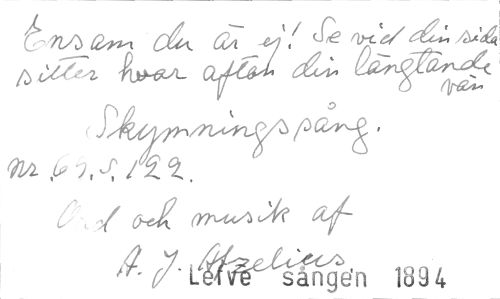 Ensam du är ej! Se vid din sida
sitter hvar afton din längtande
vän
Skymningssång.
nr. 69. s. 122.
Ord och musik af
A. J. Afzelius.
Lefve sången 1894